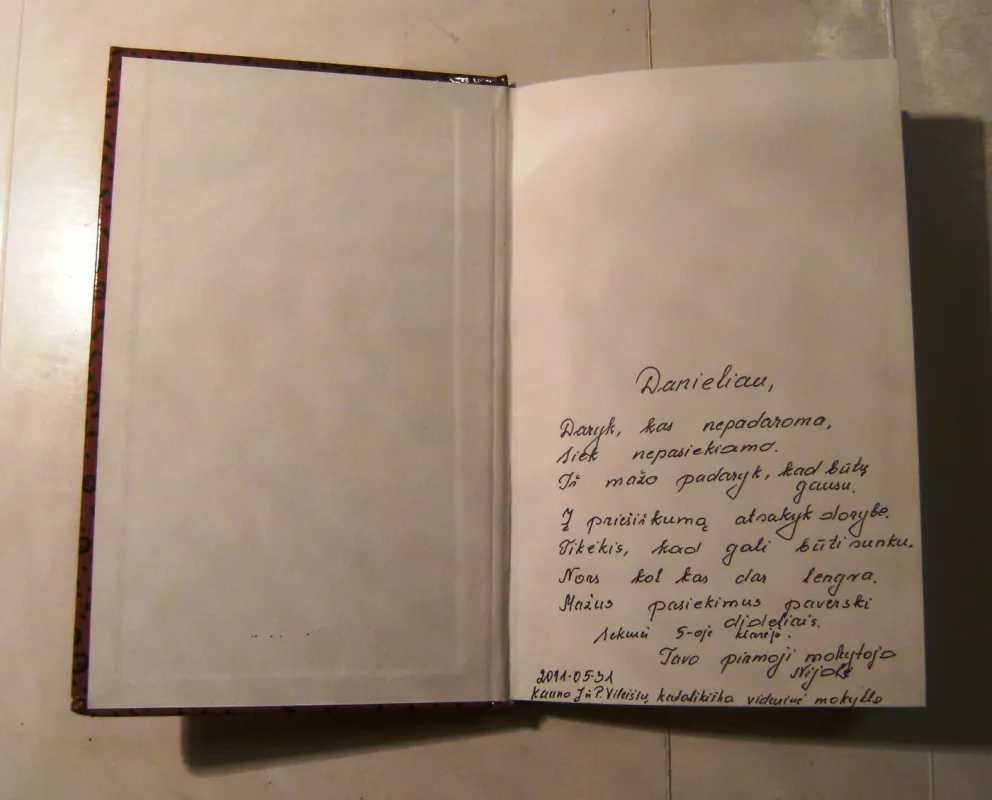 Danieliau,
Daryk, kas nepadaroma,
Siek nepasiekiamo.
Iš mažo padaryk, kad būtų
gausu.
Į priešiškumą atsakyk dorybe.
Tikėkis, kad gali būti sunku,
Nors kol kas dar lengva.
Mažus pasiekimus paverski
dideliais.
Sėkmės 5-oje klasėje.
Tavo pirmoji mokytoja
Nijolė
2011-05-31
Kauno J. ir P. Vileišių katalikiška vidurinė mokykla